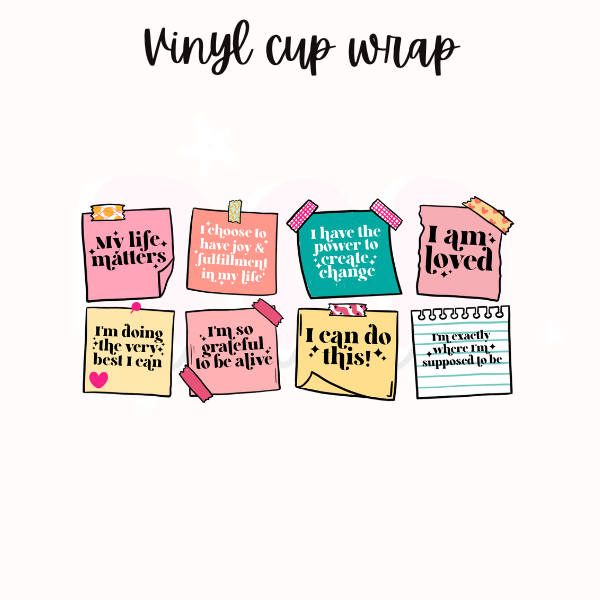 vinyl cup wrap
My life
matters
I choose to
have joy &
fulfillment
in my life
I have the
power to
create
change
I am
loved
I'm doing
the very
best I can
I'm so
grateful
to be alive
I can do
this!
I'm exactly
where I'm
supposed to be